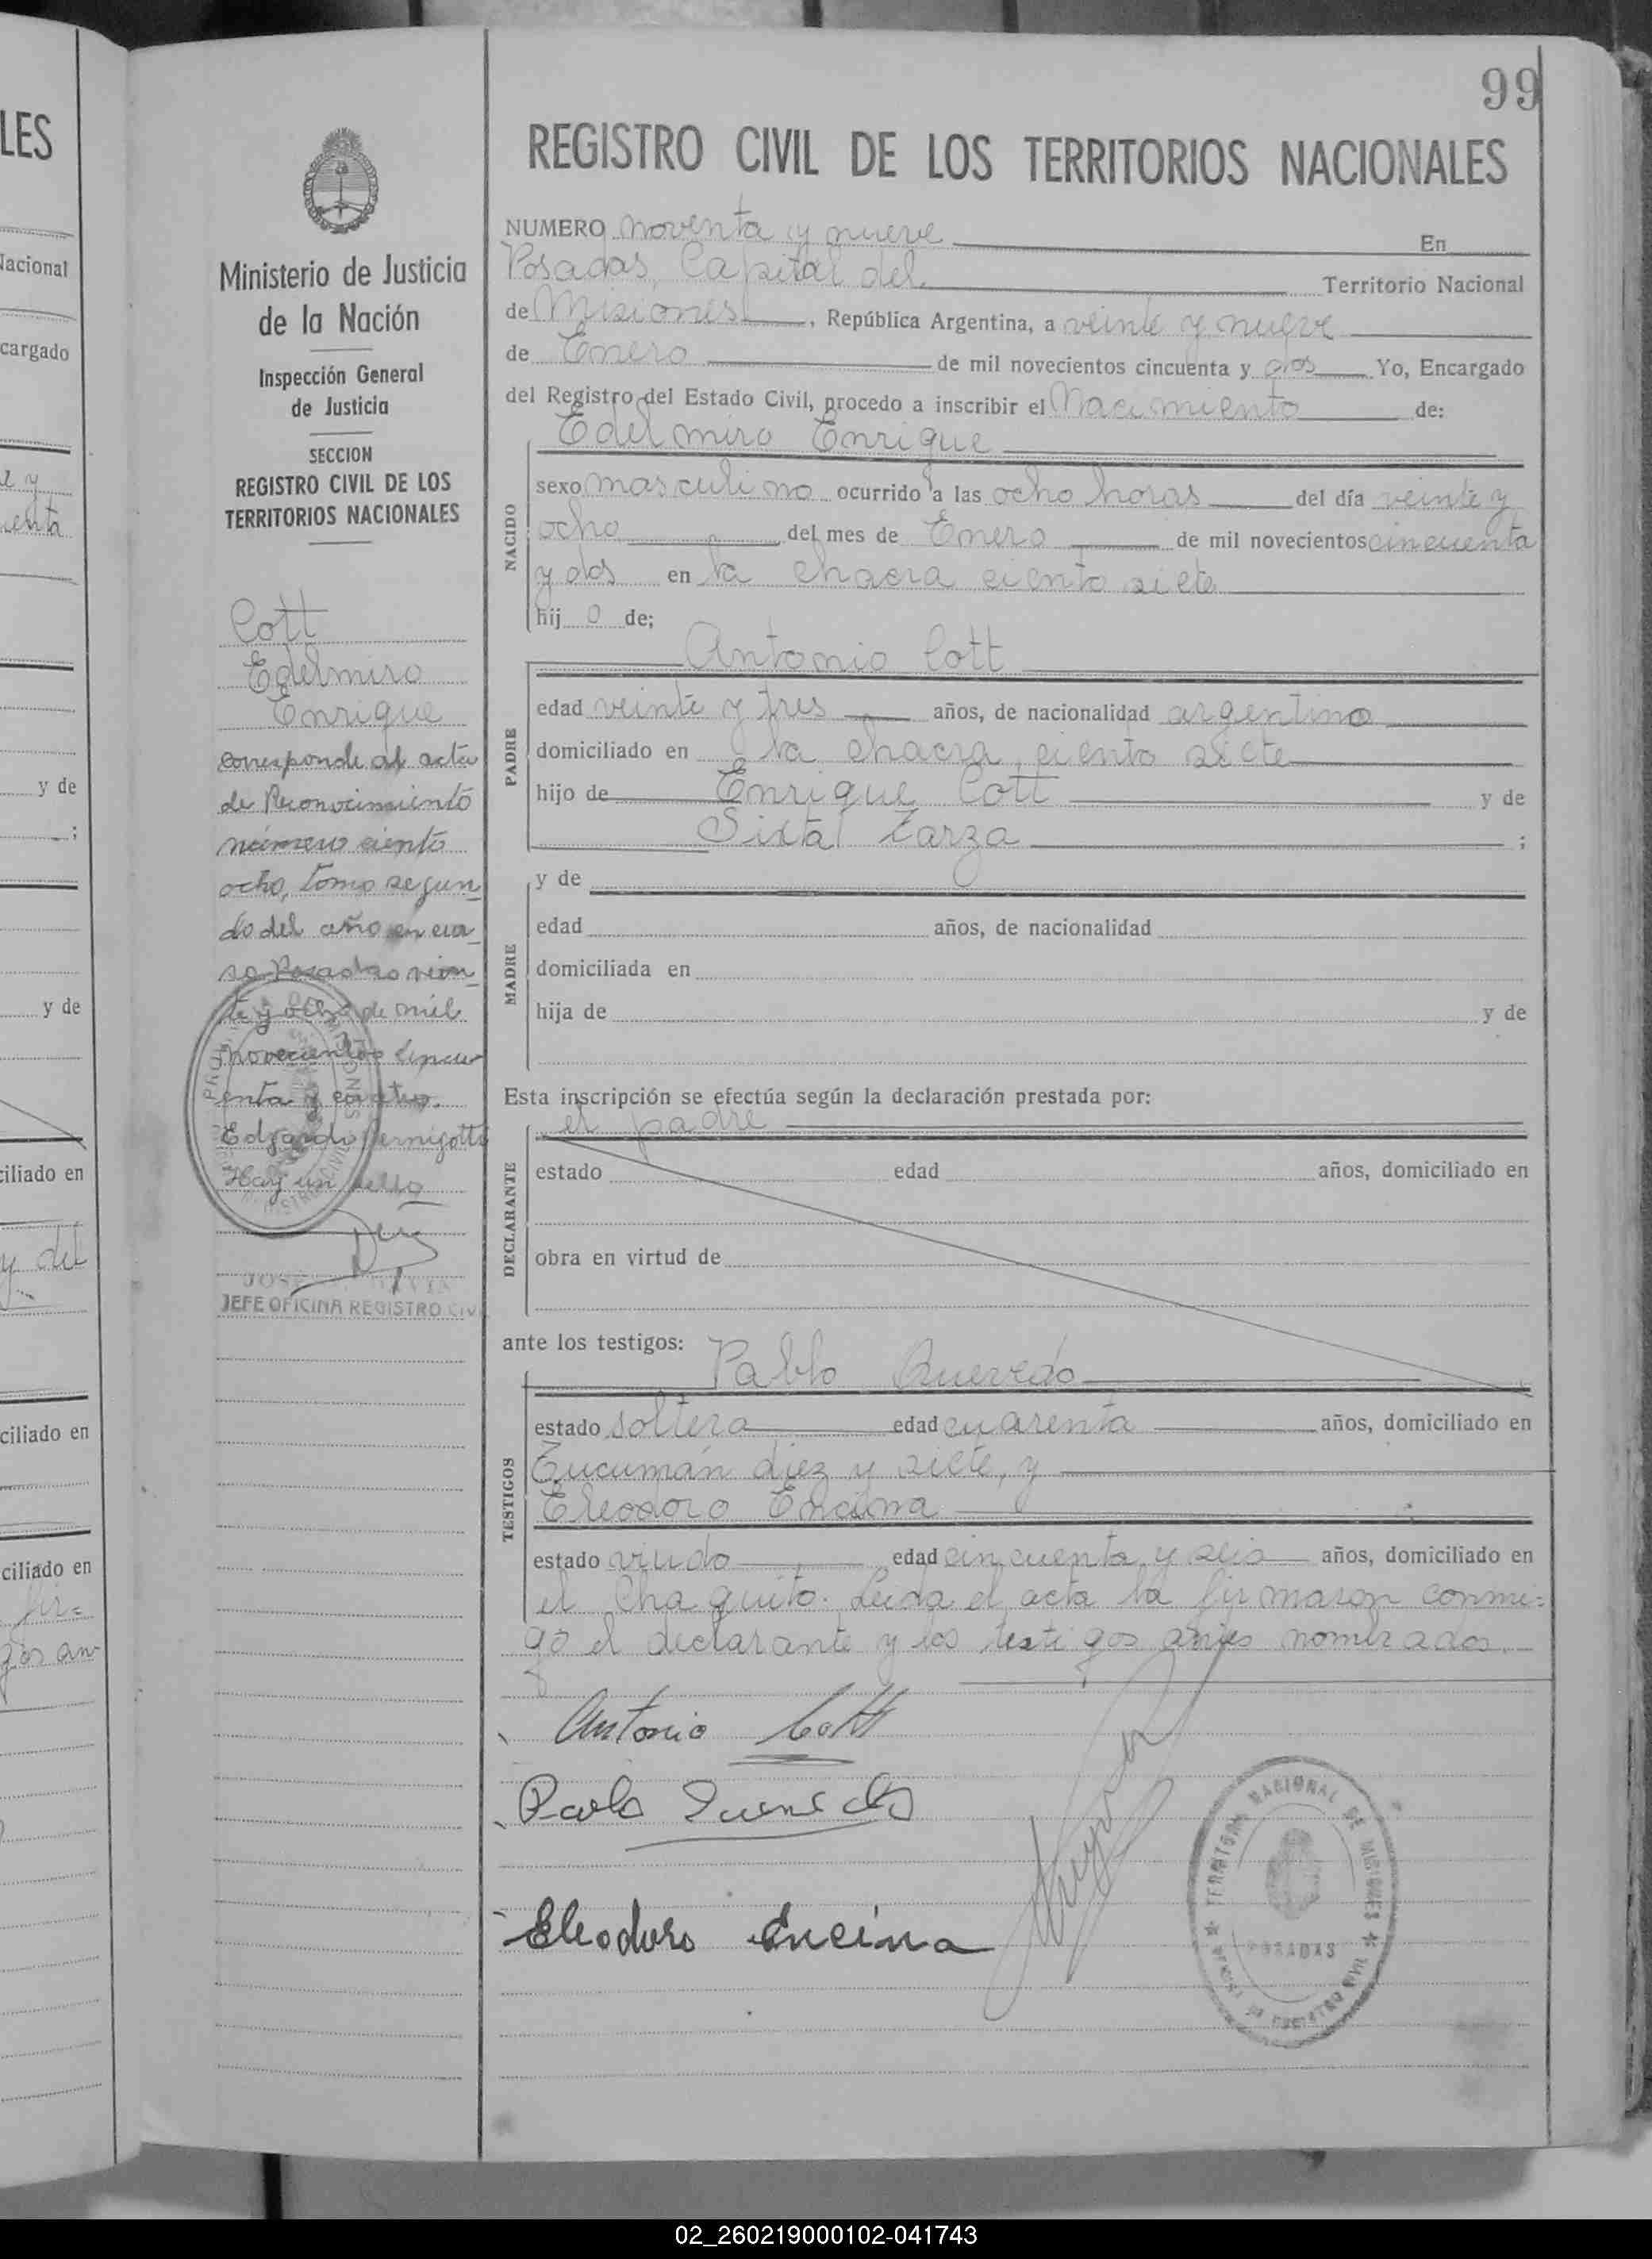 99
REGISTRO CIVIL DE LOS TERRITORIOS NACIONALES
NUMERO noventa y nueve En
Posadas, Capital del Territorio Nacional
de Misiones, República Argentina, a veinte y nueve
de Enero de mil novecientos cincuenta y dos Yo, Encargado
del Registro del Estado Civil, procedo a inscribir el Nacimiento de:
Edelmiro Enrique
NACIDO
sexo masculino ocurrido a las ocho horas del día veinte y
ocho del mes de Enero de mil novecientos cincuenta
y dos en la chacra ciento siete
hij o de;
Antonio Cott
PADRE
edad veinte y tres años, de nacionalidad argentino
domiciliado en la chacra ciento siete
hijo de Enrique Cott y de
Sixta Zarza ;
MADRE
y de
edad años, de nacionalidad
domiciliada en
hija de y de
Esta inscripción se efectúa según la declaración prestada por:
el padre
DECLARANTE
estado edad años, domiciliado en
obra en virtud de
ante los testigos:
Pablo Quevedo
TESTIGOS
estado soltero edad cuarenta años, domiciliado en
Tucumán diez y siete, y
Eleodoro Encina
estado viudo edad cincuenta y seis años, domiciliado en
el Chaquito. Leida el acta la firmaron conmi=
go el declarante y los testigos antes nombrados.
Antonio Cott
Eleodoro Encina
TERRITORIO NACIONAL DE MISIONES
POSADAS
REGISTRO CIVIL
Ministerio de Justicia
de la Nación
Inspección General
de Justicia
SECCION
REGISTRO CIVIL DE LOS
TERRITORIOS NACIONALES
Cott
Edelmiro
Enrique
corresponde al acta
de Reconocimiento
número ciento
ocho, tomo segun_
do del año en cur_
so Posadas vein_
te y ocho de mil
novecientos cincu
enta y cuatro.
Edgardo Pernigotti
Hay un sello
JOSE
JEFE OFICINA REGISTRO CIV
LES
Nacional
cargado
y de
;
y de
ciliado en
y del
ciliado en
ciliado en
fir=
02_260219000102-041743